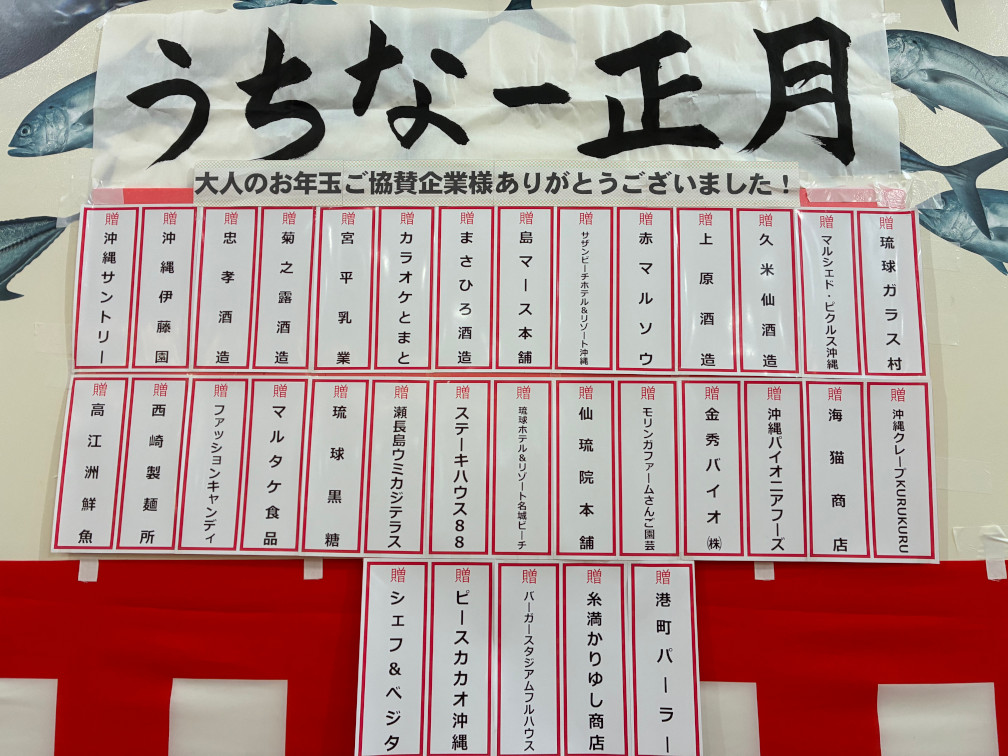 うちなー正月
大人のお年玉ご協賛企業様ありがとうございました！
贈 琉球ガラス村
贈 マルシェド・ピクルス沖縄
贈 久米仙酒造
贈 上原酒造
贈 赤マルソウ
贈 サザンビーチホテル&リゾート沖縄
贈 島マース本舗
贈 まさひろ酒造
贈 カラオケとまと
贈 宮平乳業
贈 菊之露酒造
贈 忠孝酒造
贈 沖縄伊藤園
贈 沖縄サントリー
贈 沖縄クレープKURUKURU
贈 海猫商店
贈 沖縄パイオニアフーズ
贈 金秀バイオ㈱
贈 モリンガファームさんご園芸
贈 仙琉院本舗
贈 琉球ホテル&リゾート名城ビーチ
贈 ステーキハウス88
贈 瀬長島ウミカジテラス
贈 琉球黒糖
贈 マルタケ食品
贈 ファッションキャンディ
贈 西崎製麺所
贈 高江洲鮮魚
贈 港町パーラー
贈 糸満かりゆし商店
贈 バーガースタジアムフルハウス
贈 ピースカカオ沖縄
贈 シェフ&ベジタ